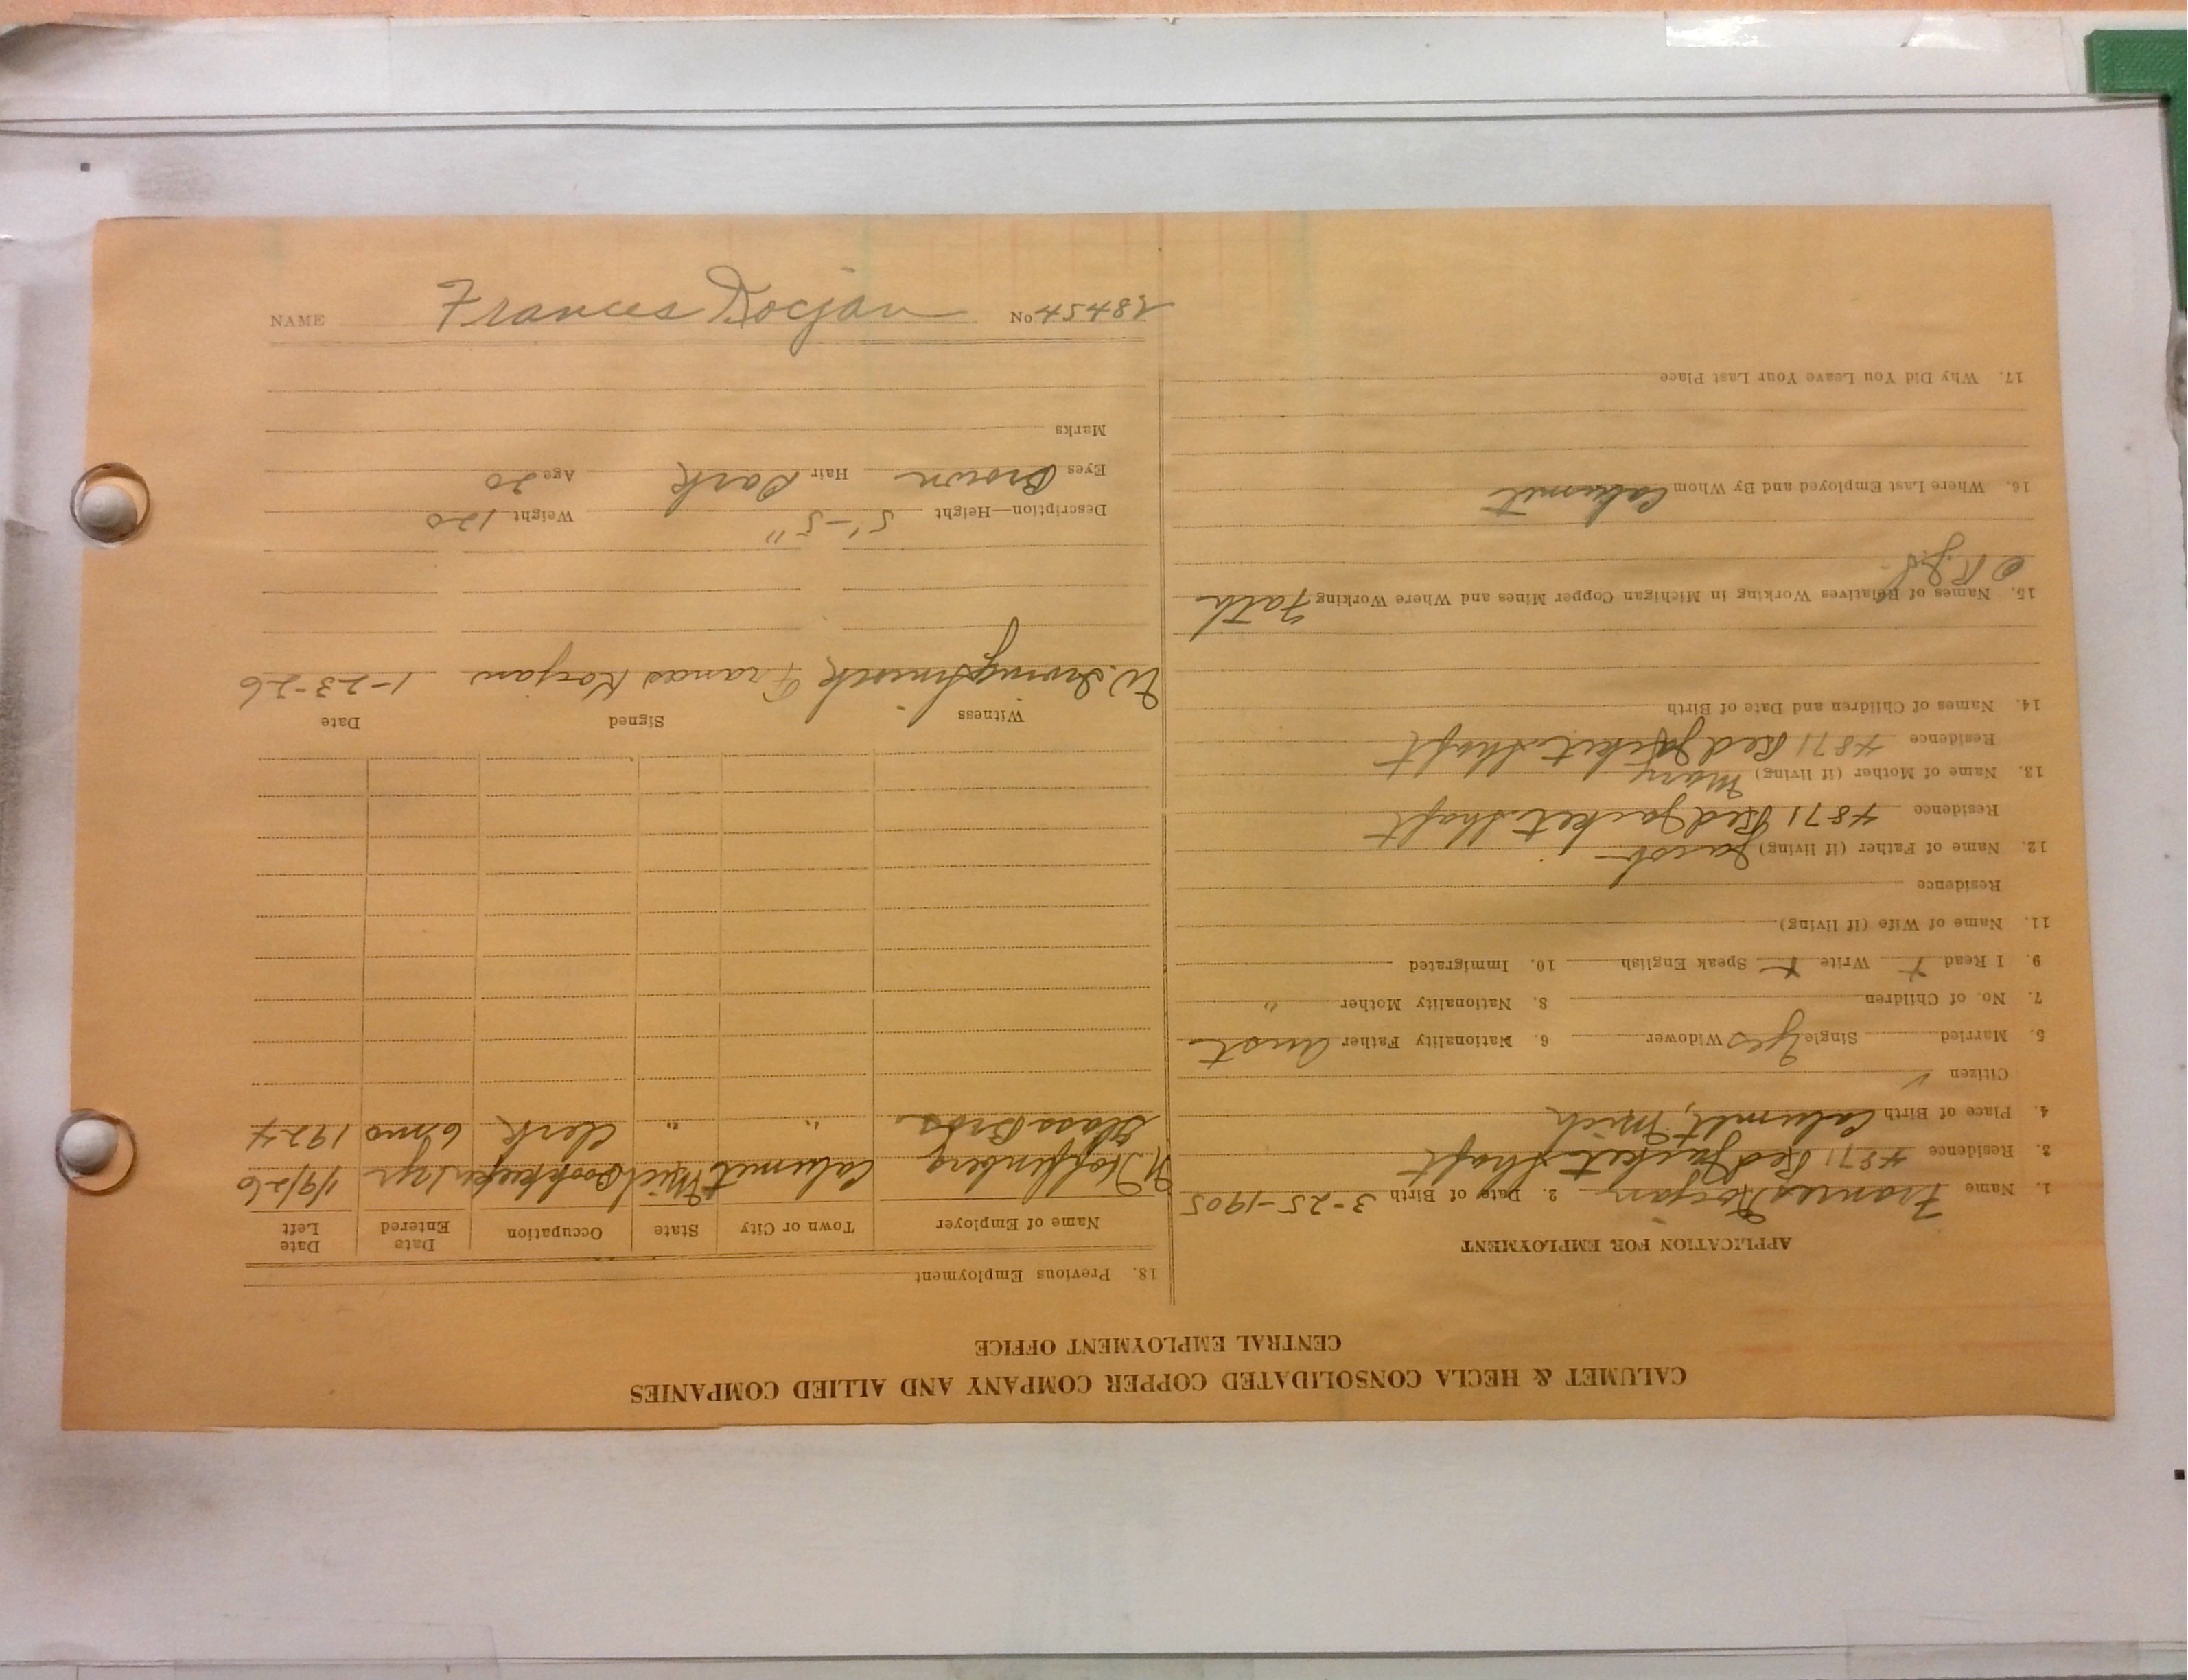 CALUMET & HECLA CONSOLIDATED COPPER COMPANY AND ALLIED COMPANIES
CENTRAL EMPLOYMENT OFFICE
APPLICATION FOR EMPLOYMENT
1. Name Frances Kocjan 2. Date of Birth 3-25-1905
3. Residence 4871 Red Jacket Shaft
4. Place of Birth Calumet, Mich
Citizen ✓
5. Married Single yes Widower 6. Nationality Father Aust
7. No. of Children 8. Nationality Mother "
9. I Read + Write + Speak English 10. Immigrated
11. Name of Wife (if living)
Residence
12. Name of Father (if living) Jacob
Residence 4871 Red Jacket Shaft
13. Name of Mother (if living) Mary
Residence 4871 Red Jacket Shaft
14. Names of Children and Date of Birth
15. Names of Relatives Working in Michigan Copper Mines and Where Working Fath
O.K.
16. Where Last Employed and By Whom Calumet
17. Why Did You Leave Your Last Place
18. Previous Employment
Name of Employer Town or City State Occupation Date Entered Date Left
N. Hoffenberg Calumet Mich Bookkeeper 1 yr 1/9/26
Glass Bros. " " Clerk 6 mo 1924
Witness Signed Date
W. Irving Frances Kocjan 1-23-26
Description—Height 5'-5" Weight 120
Eyes Brown Hair Dark Age 20
Marks
NAME Frances Kocjan No 45482